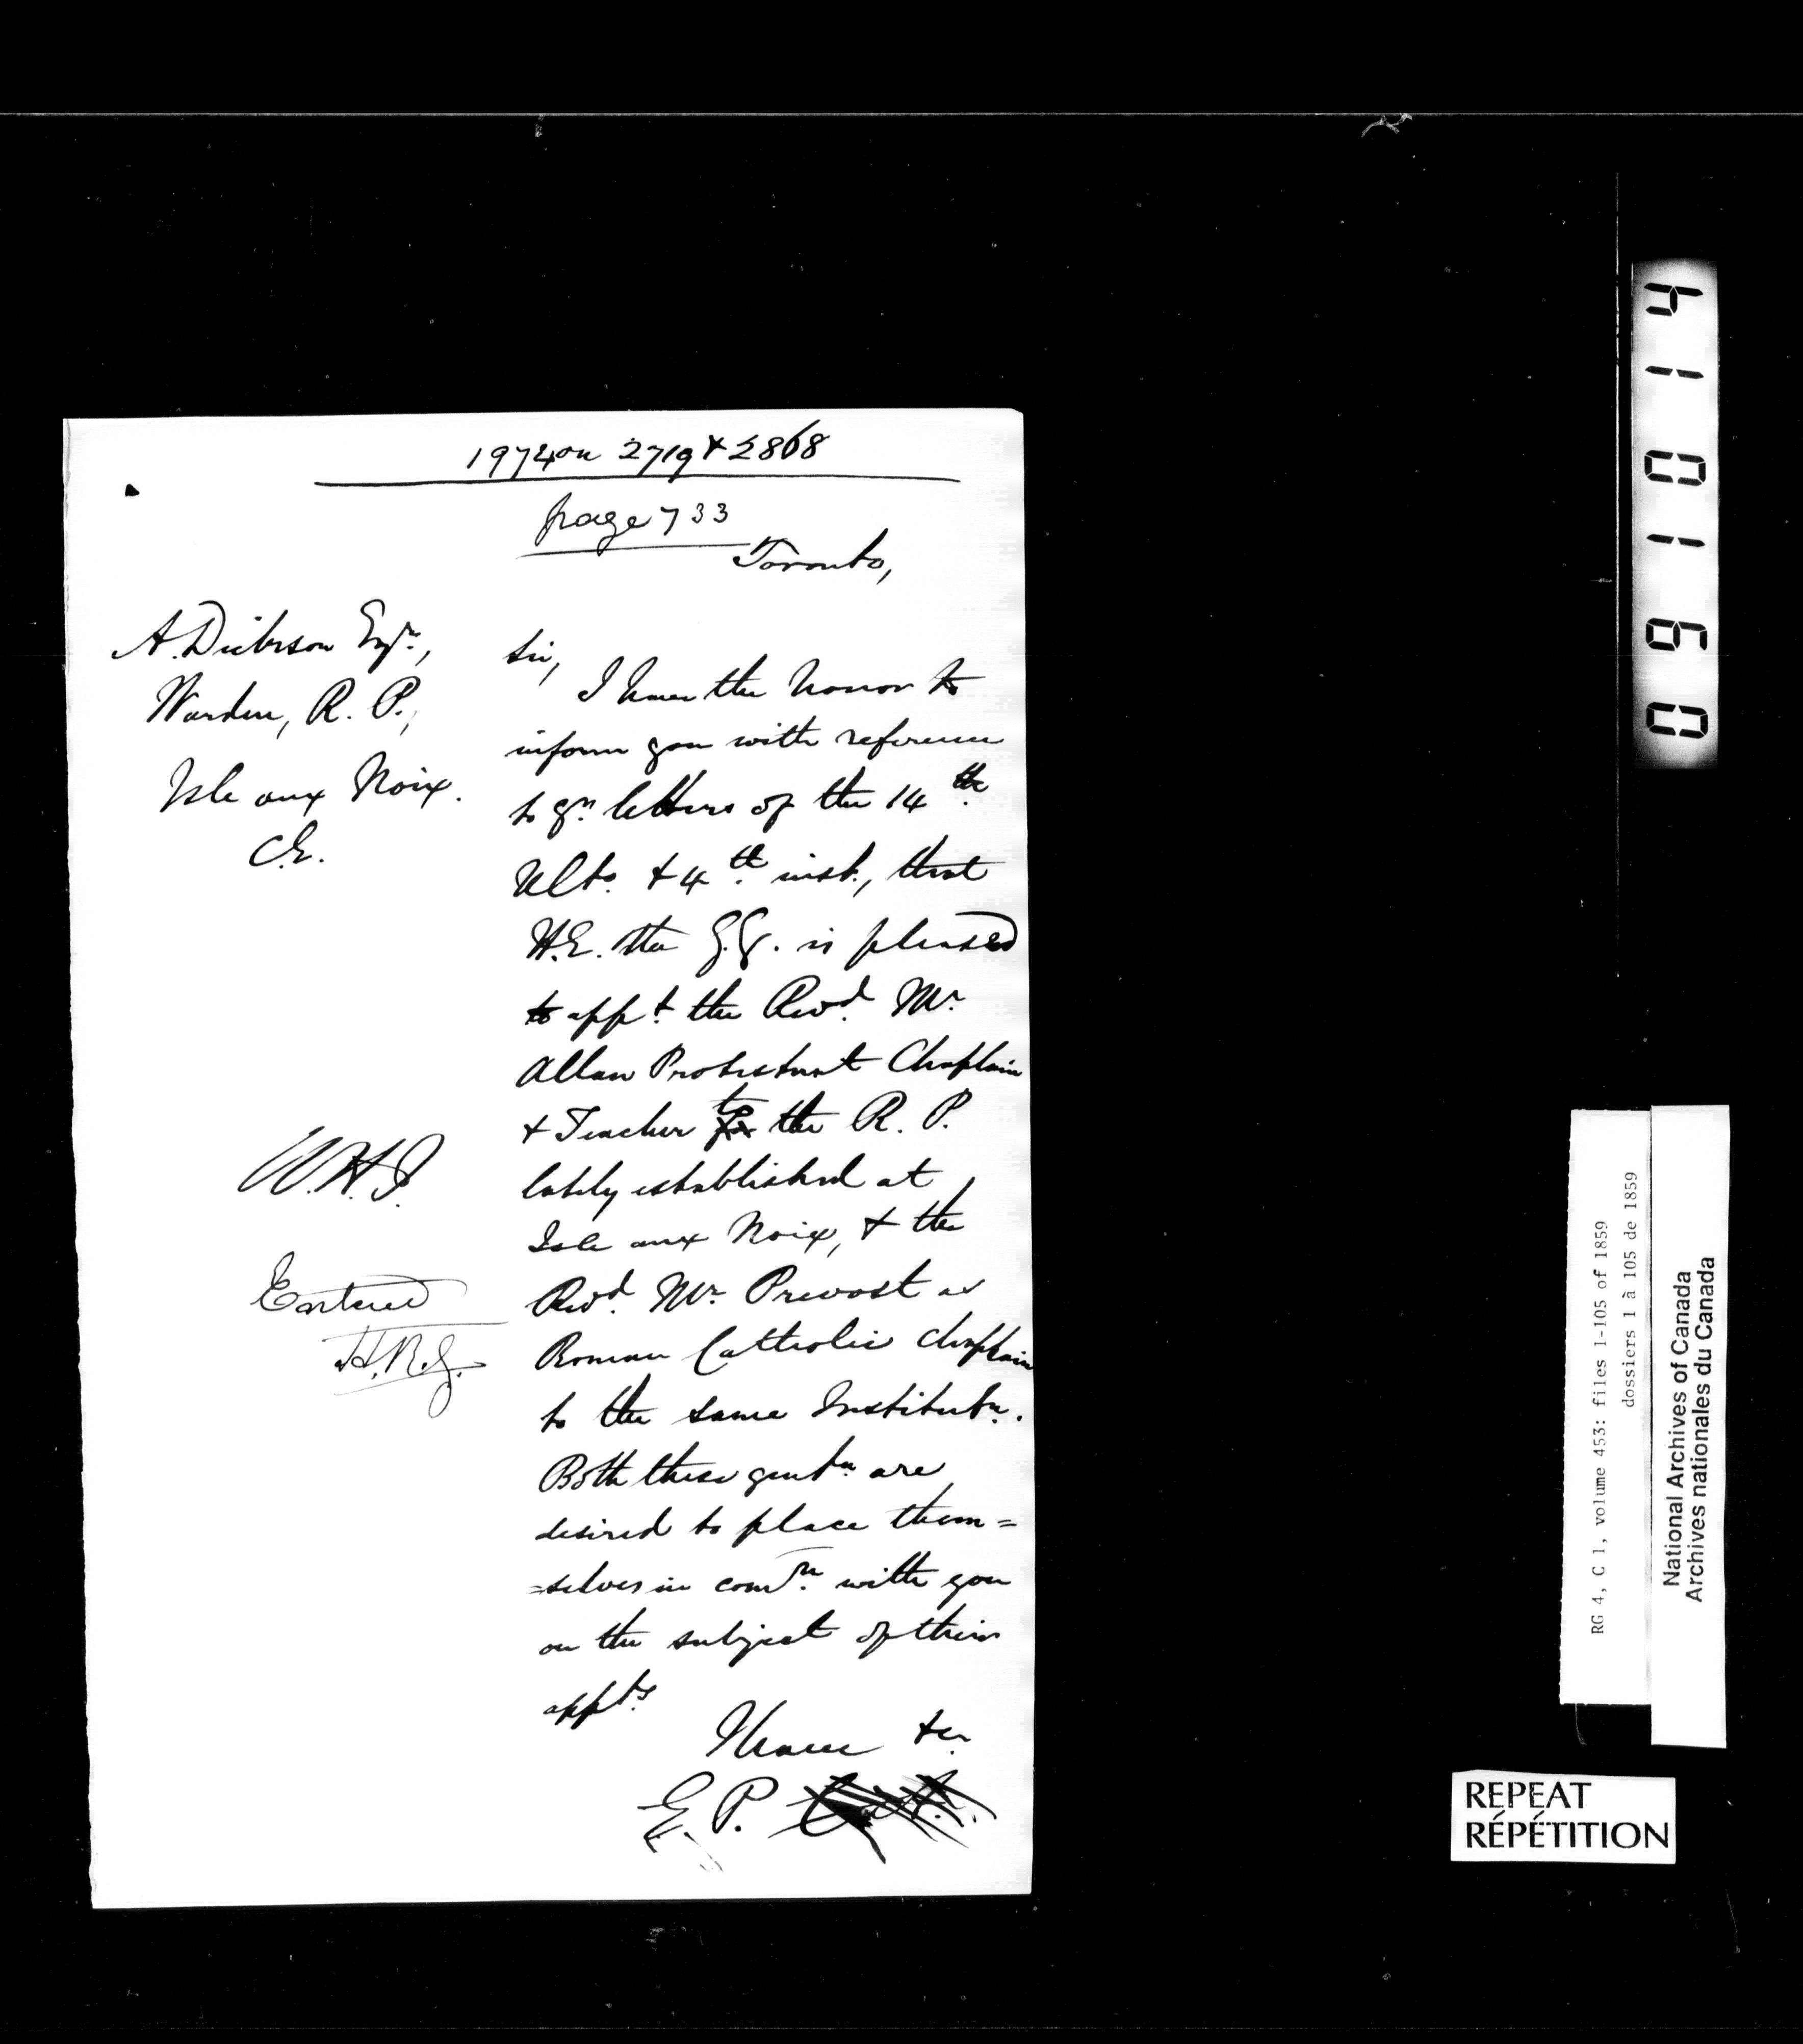 1974 on 2719 & 2868
page 733
Toronto,
A. Dickson Esqr.,
Warden, R. P.,
Isle aux Noix.
C.E.
Sir,
I have the honor to
inform you with reference
to yr. letters of the 14th
Ulto. & 4th inst., that
H.E. the G.G. is pleased
to appt. the Revd. Mr.
Allan Protestant Chaplain
& Teacher to the R. P.
lately established at
Isle aux Noix, & the
Revd. Mr. Prevost as
Roman Catholic Chaplain
to the same Institutn.
Both these gentn. are
desired to place them=
=selves in comn. with you
on the subject of their
appts.
I have &c.
E. P.
W.H.J.
Entered
H.R.J.
41 0 1 6 0
RG 4, C 1, volume 453: files 1-105 of 1859
dossiers 1 à 105 de 1859
National Archives of Canada
Archives nationales du Canada
REPEAT
RÉPÉTITION